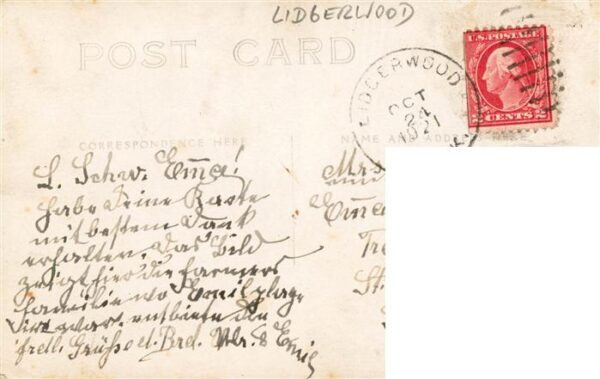 LIDGERWOOD
POST CARD
U.S. POSTAGE
2 CENTS 2
LIDGERWOOD
OCT
24
1921
CORRESPONDENCE HERE
NAME AND ADDRESS HERE
L. Schw. Em̅a!
Habe Deine Karte
mit bestem Dank
erhalten. Das Bild
zeigt hier die Farmers
familie wo Emil
war. entbiete
frdl. Grüße
Emil
Mrs
Em̅a
St.